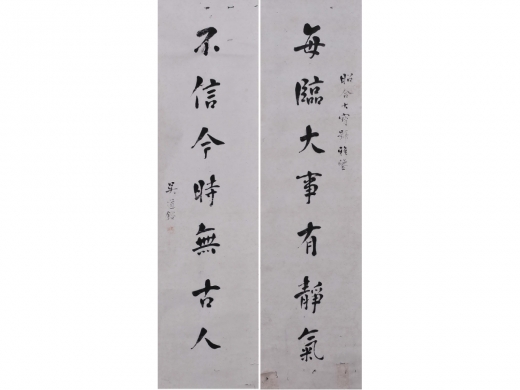 每臨大事有靜氣
不信今時無古人